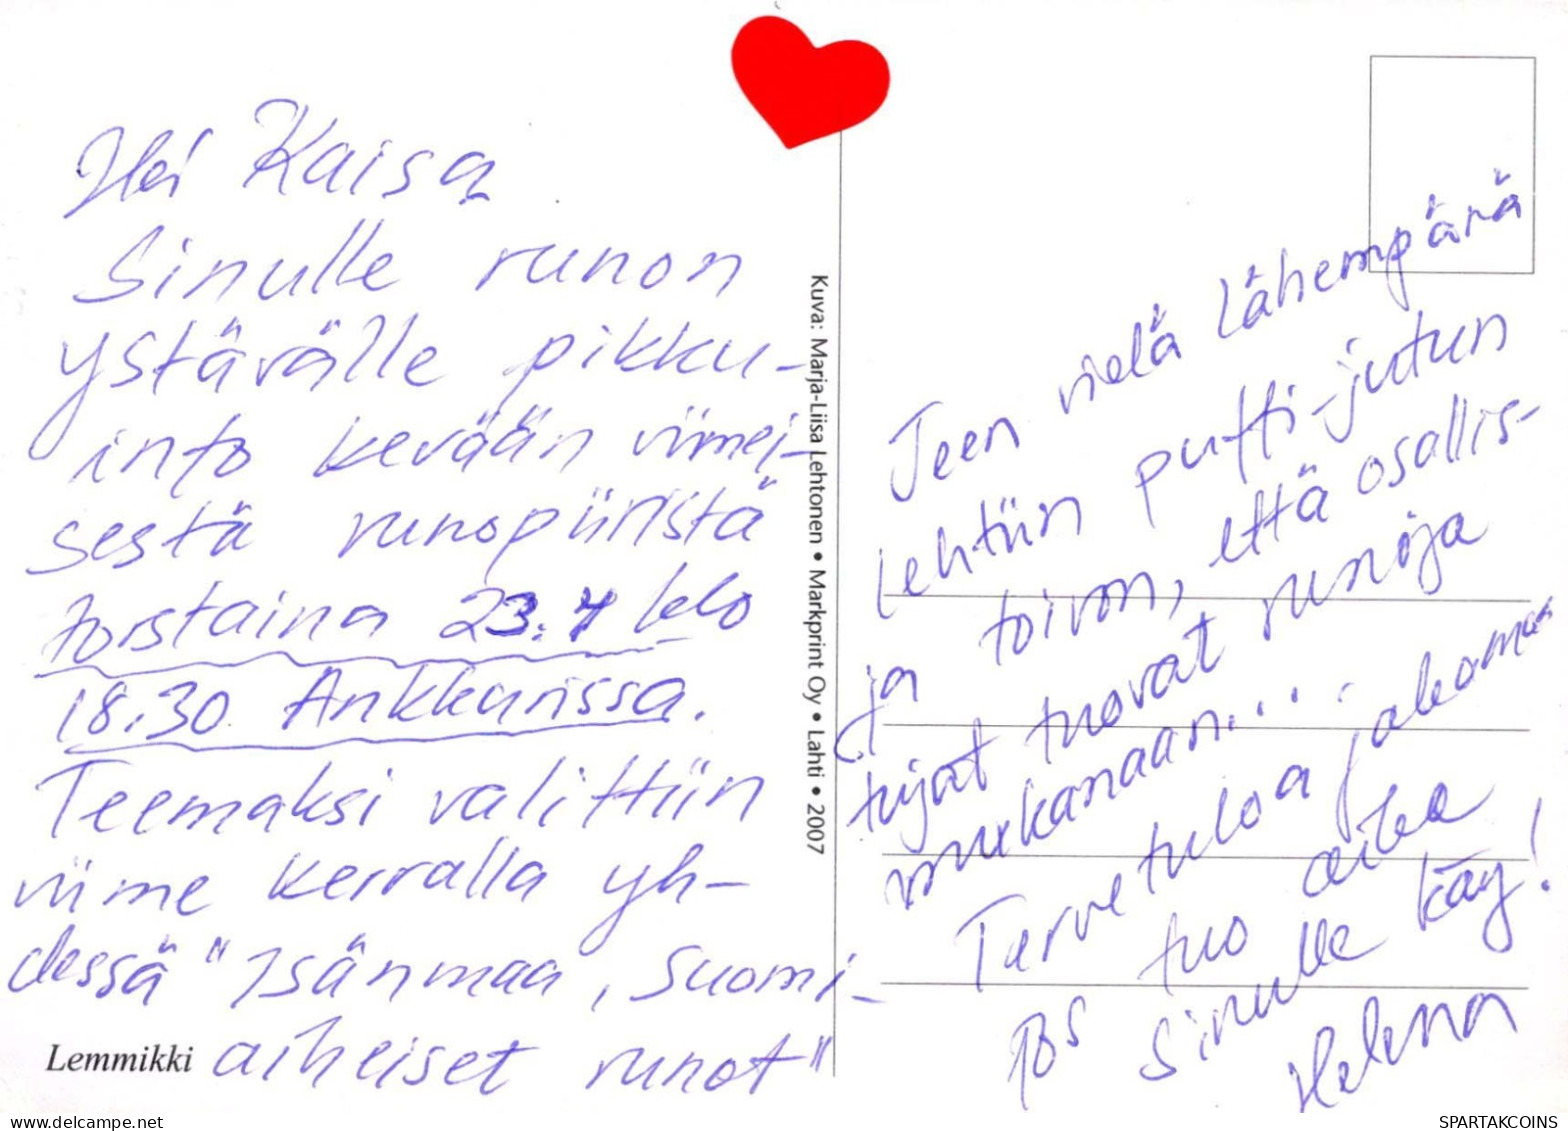 Hei Kaisa
Sinulle runon
ystävälle pikku-
info kevään viimei-
sestä runopiiristä
torstaina 23.4 klo
18.30 Ankkurissa.
Teemaksi valittiin
viime kerralla yh-
dessä "Isänmaa, Suomi-
aiheiset runot"
Lemmikki
Kuva: Marja-Liisa Lehtonen • Markprint Oy • Lahti • 2007
Teen vielä lähempänä
lehtiin putti-jutun
ja toivon, että osallis-
tujat tuovat runoja
mukanaan....
Tervetuloa, jakomas
PS tuo aika
Sinulle käy!
Helena
delcampe.net
SPARTAKCOINS